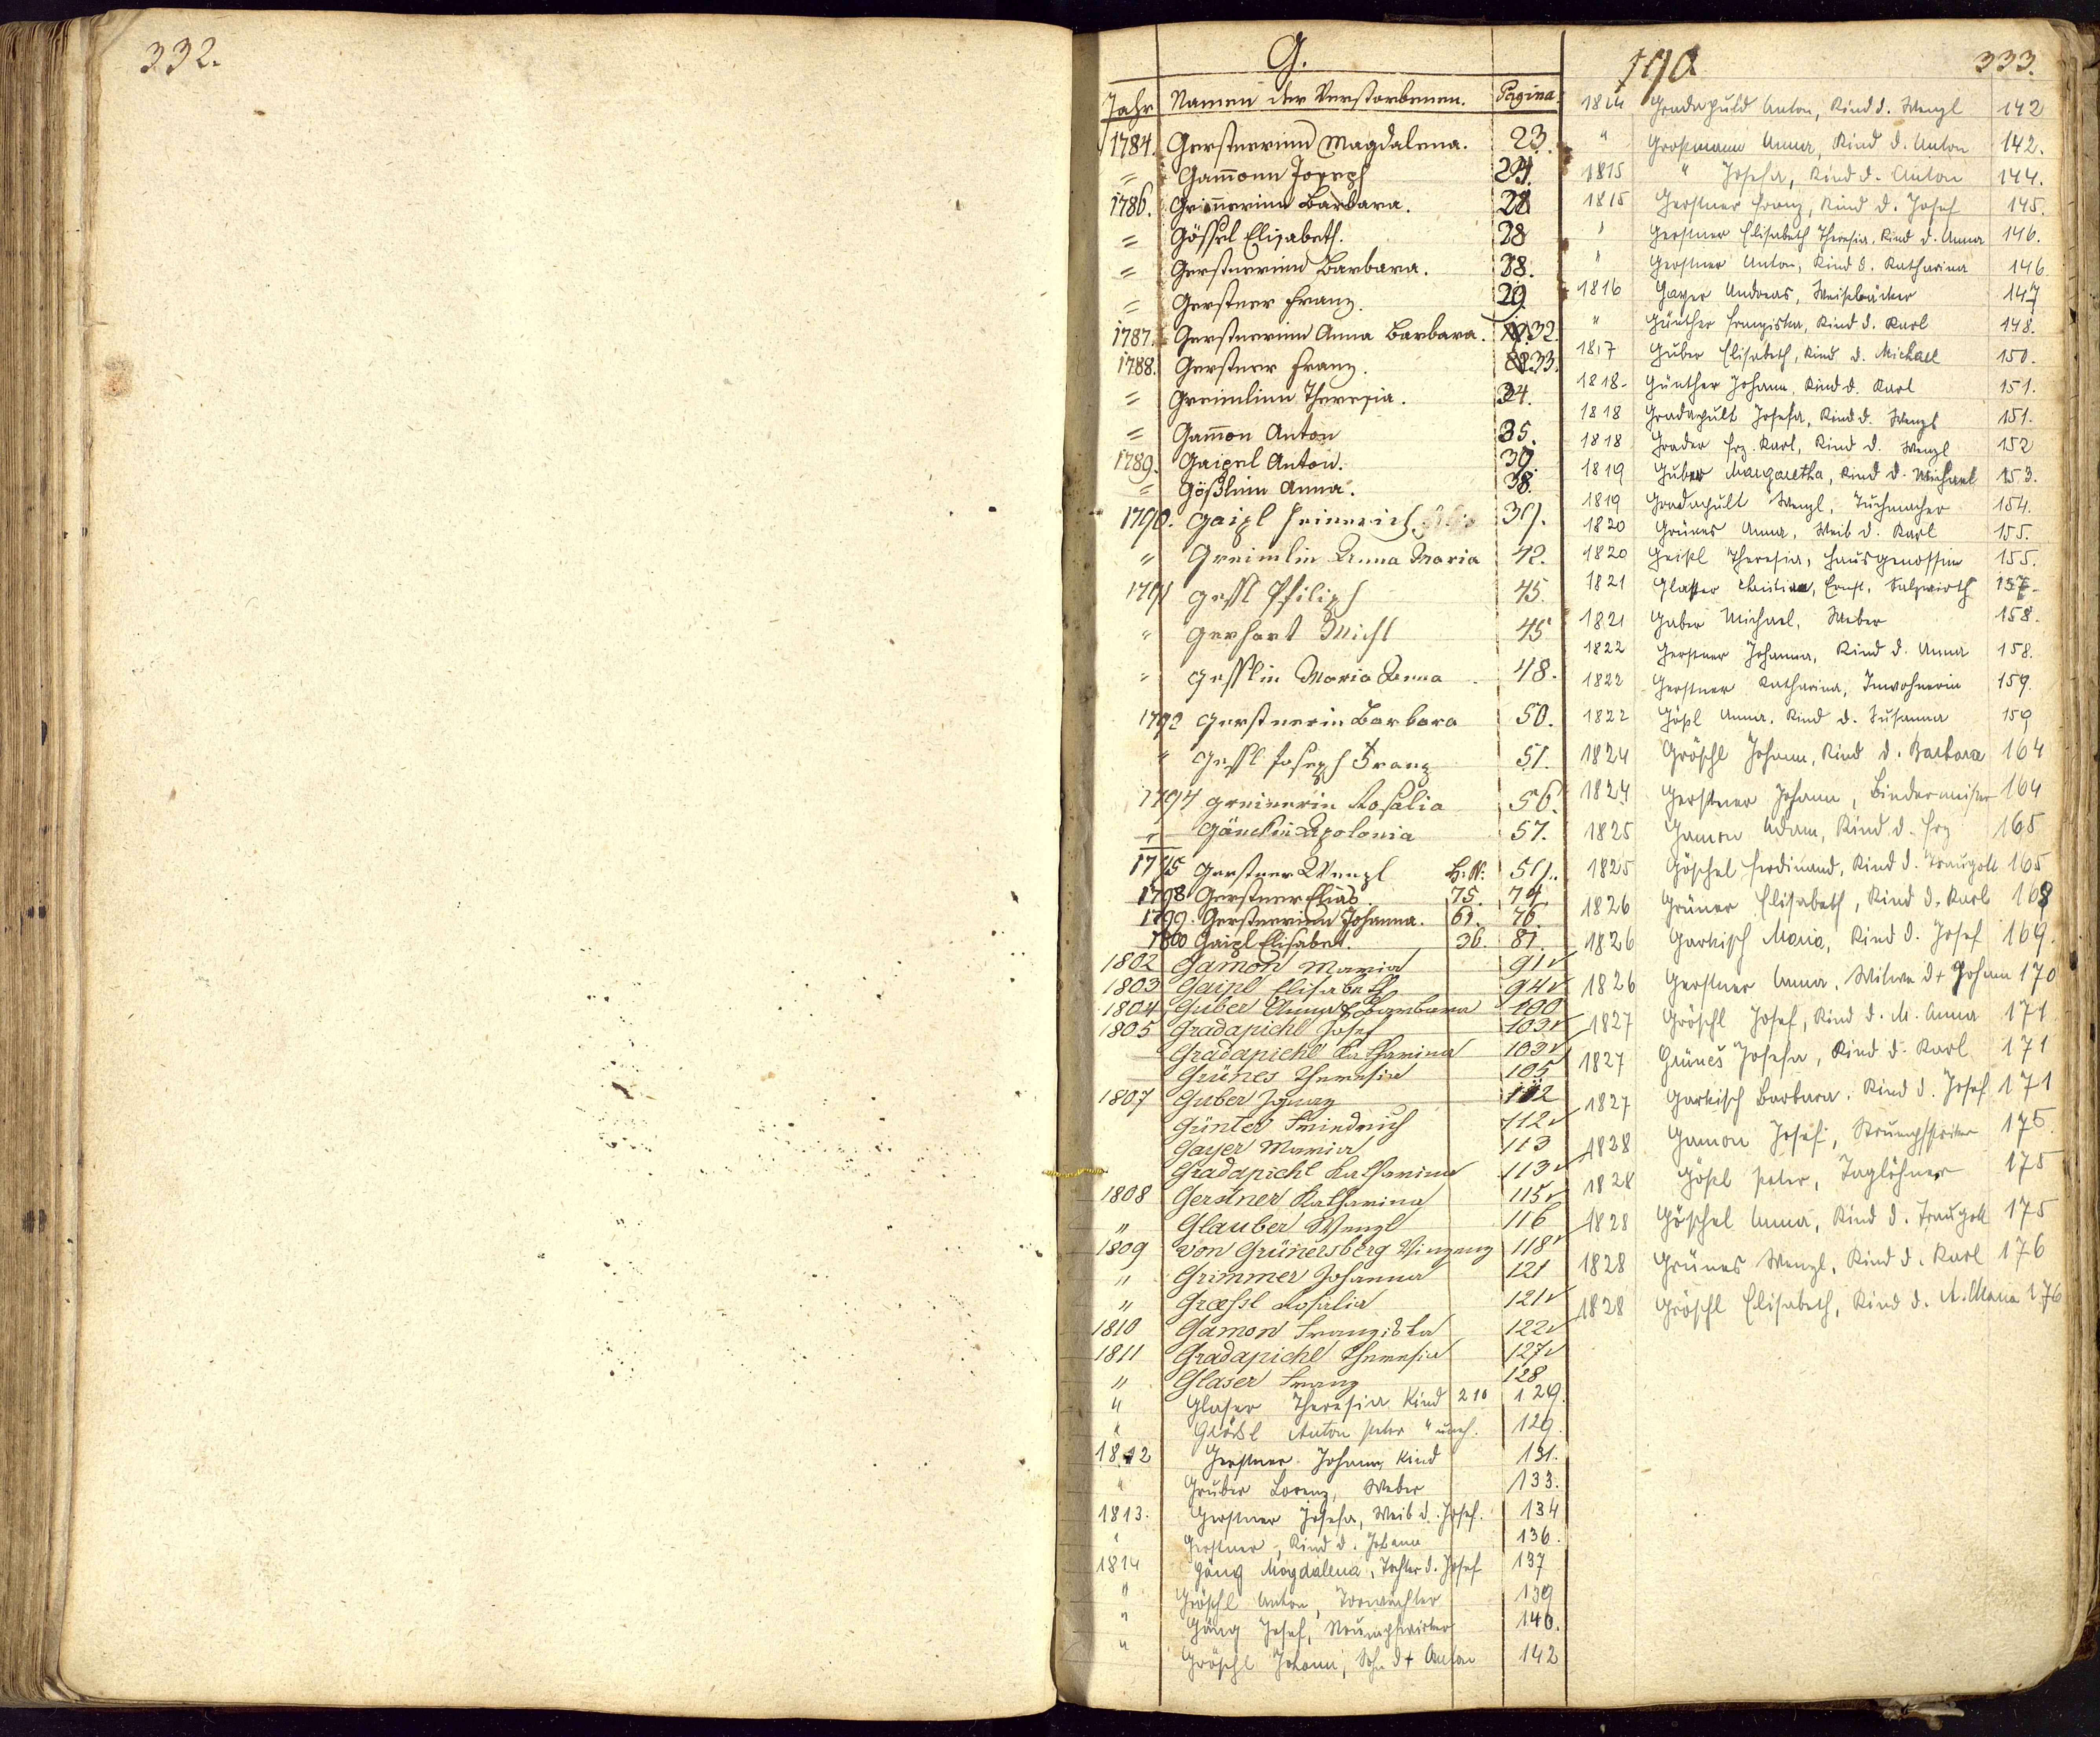 332.
G.
Jahr Namen der Verstorbenen. Pagina.
1784. Gerstnerinn Magdalena. 23.
= Gam̄onn Joseph 24.
1786. Barbara. 28
= Gößel Elisabeth. 28
= Gerstnerinn Barbara. 28.
= Gerstner Franz. 29
1787. Gerstnerinn Anna Barbara. 32.
1788. Gerstner Franz. 33.
= Greimlinn Theresia. 34.
= Gam̄on Anton 35.
1789. Gaipel Anton. 37.
= Gößlinn Anna. 38.
1790. Gaipl Heinrich 39.
" Greimlin Anna Maria 42.
1791 Gessl Philiph 45.
" Gerhart Michl 45
" Gesslin Maria Anna 48.
1792 Gerstnerin Barbara 50.
" Gessl Joseph Franz 51.
1794 Greinerin Rosalia 56.
Apolonia 57.
1795 Gerstner Wenzl H. N. 59.
1798 Gerstner Elias. 75. 74.
1799. Gerstnerinn Johanna. 61. 76.
1800 Gaipl Elisabet. 36. 81.
1802 Gamon Maria 91
1803 Gaipl Elisabeth 94
1804 Guber Anna Barbara 100
1805 Gradapichl Josef 103
Gradapichl Katharina 103
Grünes Theresia 105
1807 Guber Ignaz 112
Günter Friedrich 112
Gayer Maria 113
Gradapichl Katharina 113
1808 Gerstner Katharina 115
" Glauber Wenzl 116
1809 von Grünersberg Vinzenz 118
" Grimmer Johanna 121
" Groessl Rosalia 121
1810 Gamon Franziska 122
1811 Gradapichl Theresia 127
" Glaser Franz 128
" Glaser Theresia Kind 210 129.
" Anton Peter " 129.
1812 Gerstner Johann Kind 131.
" Gruber Lorenz, Weber 133.
1813. Gerstner Josefa, Weib d. Josef. 134
" Gerstner -, Kind d. Johann 136.
1814 Göng Magdalena, Tochter d. Josef 137
" Gröschl Anton, Torwächter 139
" Göng Josef, Strumpfwirker 140.
" Gröschl Johann, Sohn d + Anton 142
190 333.
1814 Gradapuld Anton, Kind d. Wenzl 142
" Großmann Anna, Kind d. Anton 142.
1815 " Josefa, Kind d. Anton 144.
1815 Gerstner Franz, Kind d. Josef 145.
" Gerstner Elisabeth Theresia, Kind d. Anna 146.
" Gerstner Anton, Kind d. Katharina 146.
1816 Gayer Andreas, Weißbäcker 147
" Günther Franziska, Kind d. Karl 148.
1817 Guber Elisabeth, Kind d. Michael 150.
1818- Günther Johann, Kind d. Karl 151.
1818 Gradapult Josefa, Kind d. Wenzl 151.
1818 Grader Frz. Karl, Kind d. Wenzl 152
1819 Guber Margaretha, Kind d. Michael 153.
1819 Gradapult Wenzl, Tuchmacher 154.
1820 Grünes Anna, Weib d. Karl 155.
1820 Geißl Theresia, Hausgenossin 155.
1821 Glasser Ernst, Salzwirth 157-
1821 Gaber Michael, Weber 158.
1822 Gerstner Johanna, Kind d. Anna 158.
1822 Gerstner Katharina, Inwohnerin 159.
1822 Gößl Anna, Kind d. Susanna 159
1824 Gröschl Johann, Kind d. Barbara 164
1824 Gerstner Johann, Bindermeister 164
1825 Gamon Adam, Kind d. Frz 165
1825 Göschel Ferdinand, Kind d. Traugott 165
1826 Grüner Elisabeth, Kind d. Karl 168
1826 Garkisch Maria, Kind d. Josef 169.
1826 Gerstner Anna, Witwe d + Johann 170
1827 Gröschl Josef, Kind d. M. Anna 171
1827 Grünes Josefa, Kind d. Karl 171
1827 Garkisch Barbara, Kind d. Josef 171
1828 Gamon Josef, 175.
1828 Gößl Peter, Taglöhner 175
1828 Göschel Anna, Kind d. Traugott 175
1828 Grünes Wenzl, Kind d. Karl 176
1828 Gröschl Elisabeth, Kind d. 176